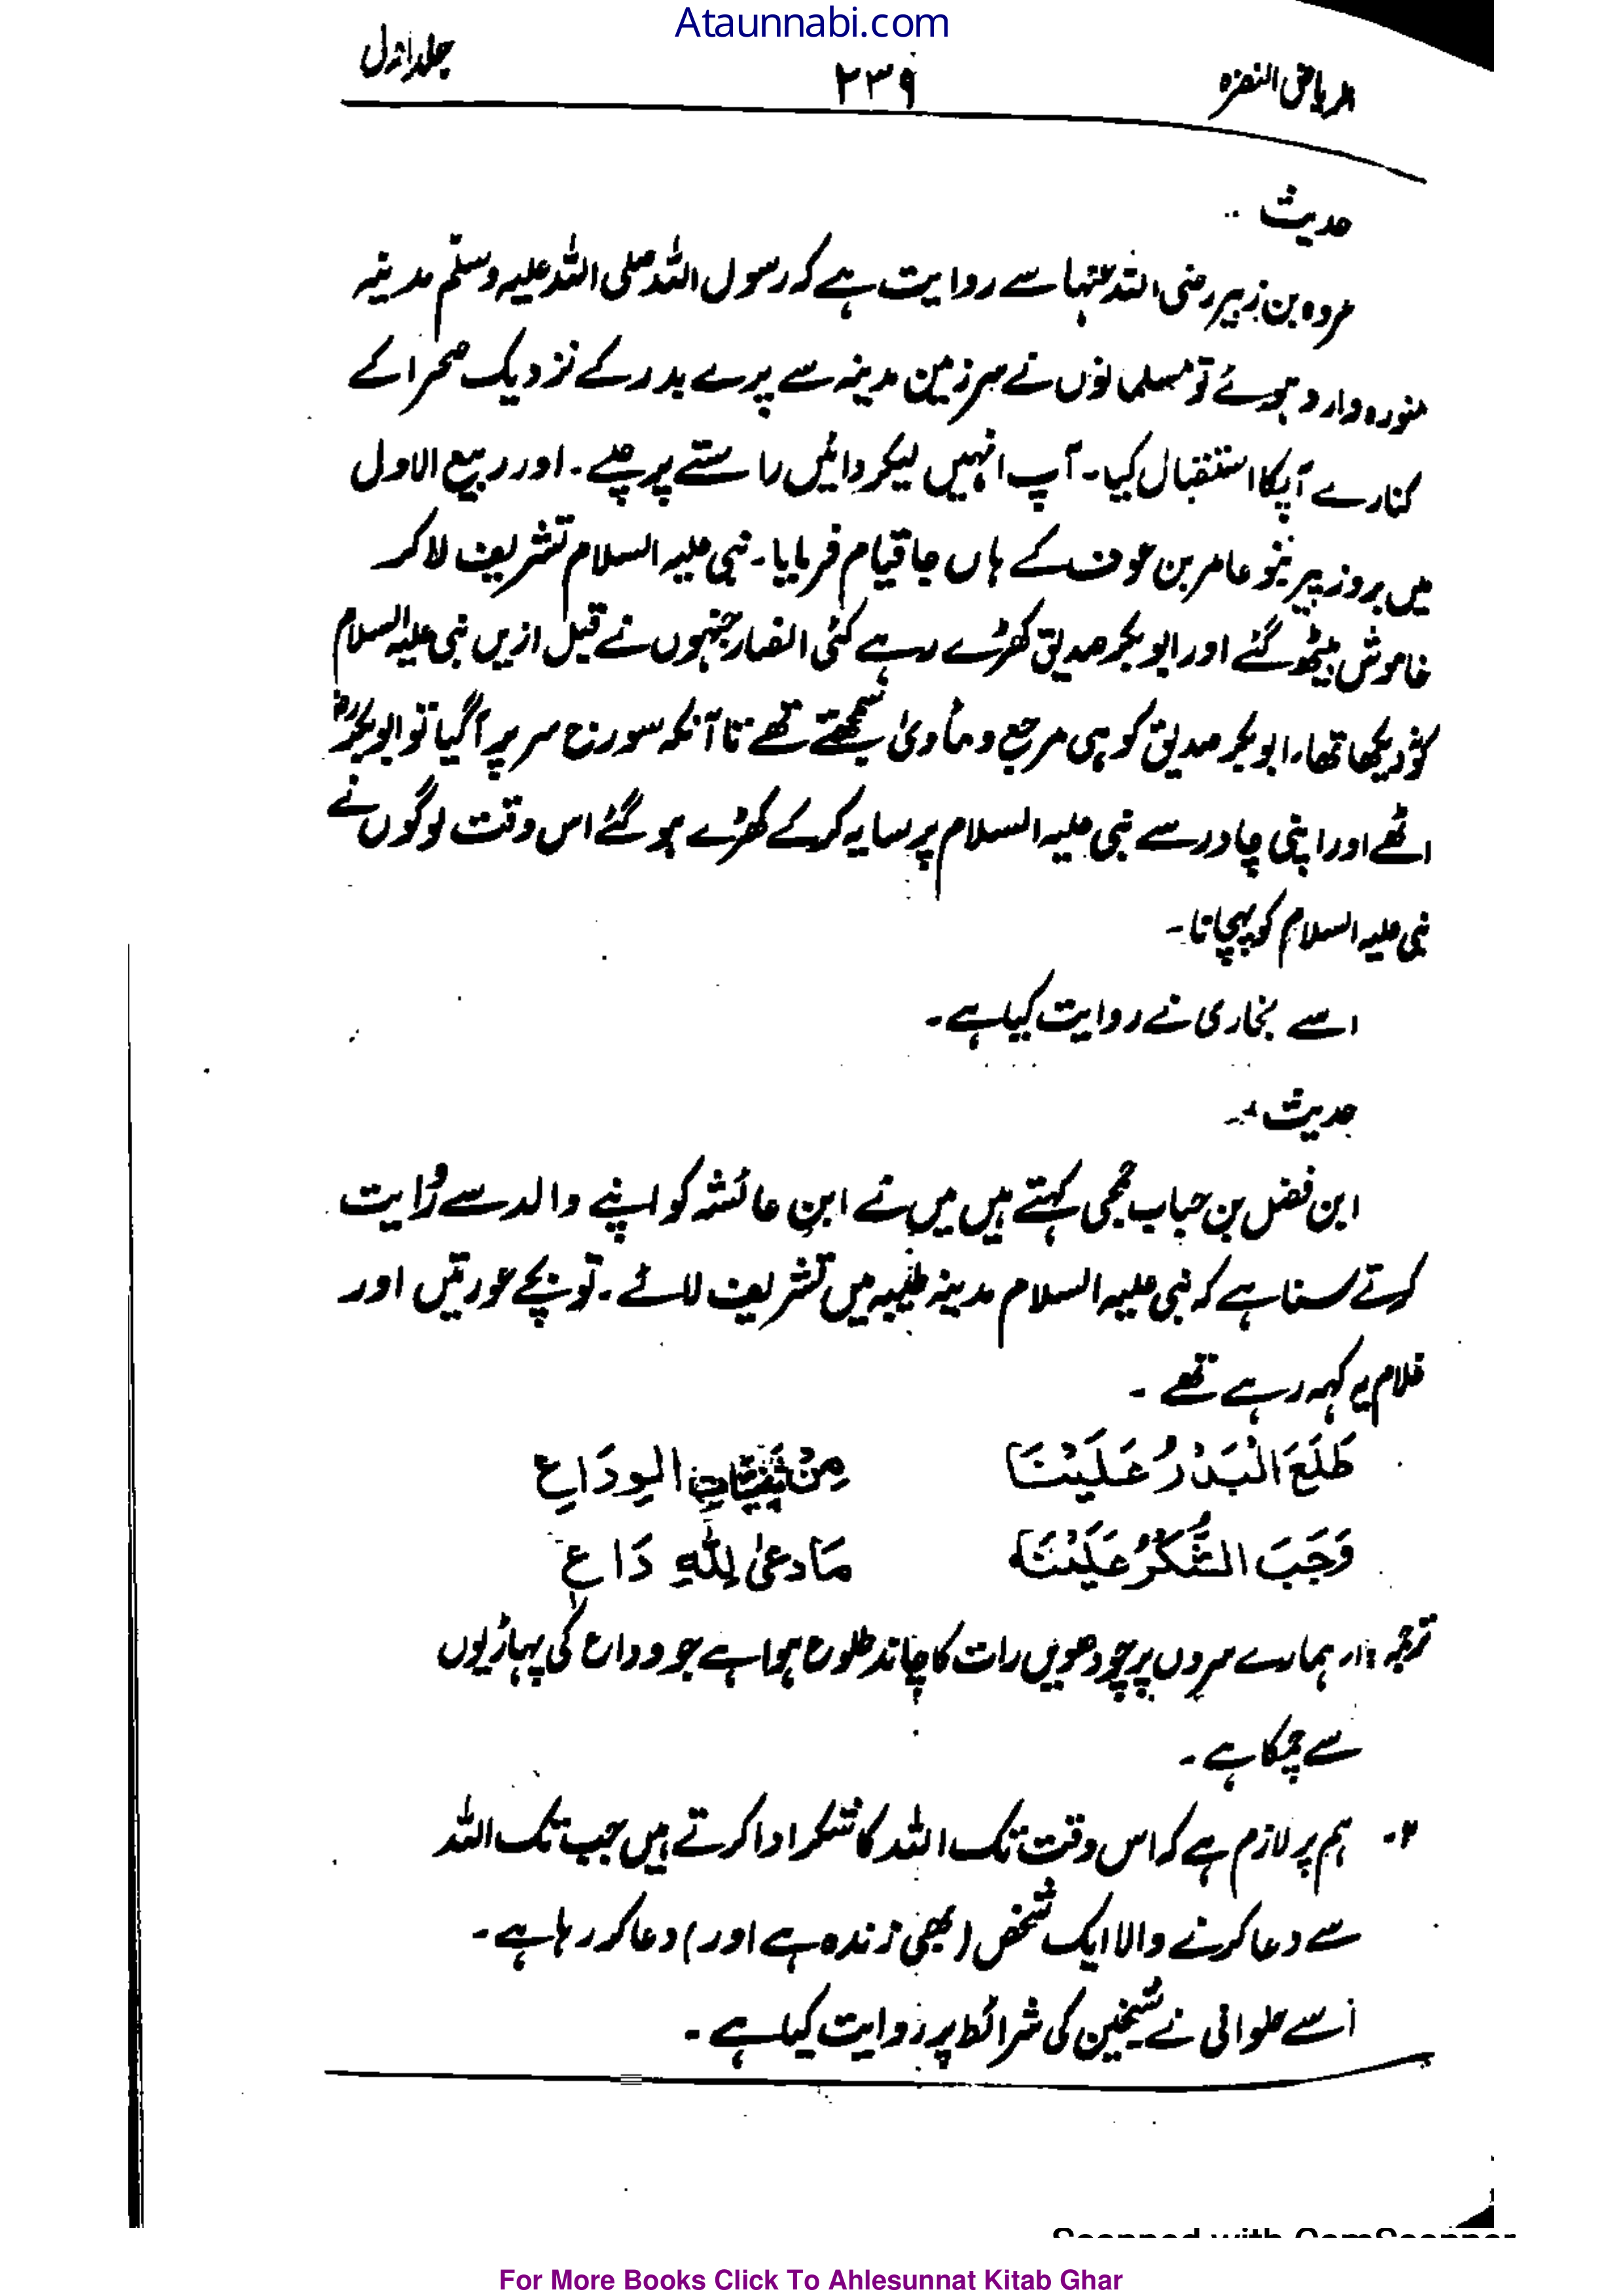 Ataunnabi.com
الریاض النضرہ ۲۳۹ جلد اول
حدیث :-
عروہ بن زبیر رضی اللہ عنہا سے روایت ہے کہ رسول اللہ صلی اللہ علیہ وسلّم مدینہ
منورہ وارد ہوئے تو مسلمانوں نے سرزمین مدینہ سے پرے بدر کے نزدیک صحرا کے
کنارے آپکا استقبال کیا۔ آپ انہیں لیکر دائیں راستے پر چلے۔ اور ربیع الاول
میں بروز پیر بنو عامر بن عوف کے ہاں جا قیام فرمایا۔ نبی علیہ السلام تشریف لا کر
خاموش بیٹھ گئے اور ابوبکر صدیق کھڑے رہے کئی انصار جنہوں نے قبل ازیں نبی علیہ السلام
کو دیکھا تھا، ابوبکر صدیق کو ہی مرجع و مأویٰ سمجھتے تھے تا آنکہ سورج سر پر آگیا تو ابوبکرؓ
اٹھے اور اپنی چادر سے نبی علیہ السلام پر سایہ کر کے کھڑے ہو گئے اس وقت لوگوں نے
نبی علیہ السلام کو پہچانا۔
اسے بخاری نے روایت کیا ہے۔
حدیث :-
ابن فضل بن حباب جمحی کہتے ہیں میں نے ابن عائشہ کو اپنے والد سے روایت
کرتے سنا ہے کہ نبی علیہ السلام مدینہ طیبہ میں تشریف لائے۔ تو بچے عورتیں اور
غلام یہ کہہ رہے تھے ۔
طَلَعَ الْبَدْرُ عَلَيْنَا مِنْ ثَنِيَّاتِ الْوِدَاعِ
وَجَبَ الشُّكْرُ عَلَيْنَا مَا دعیٰ لِلّٰهِ دَاعِ
ترجمہ :۱۔ ہمارے سروں پر چودھویں رات کا چاند طلوع ہوا ہے جو وداع کی پہاڑیوں
سے چمکا ہے۔
۲۔ ہم پر لازم ہے کہ اس وقت تک اللہ کا شکر ادا کرتے ہیں جب تک اللہ
سے دعا کرنے والا ایک شخص (بھی زندہ ہے اور) دعا کر رہا ہے۔
اُسے حلوانی نے شیخین کی شرائط پر روایت کیا ہے۔
Scanned with CamScanner
For More Books Click To Ahlesunnat Kitab Ghar